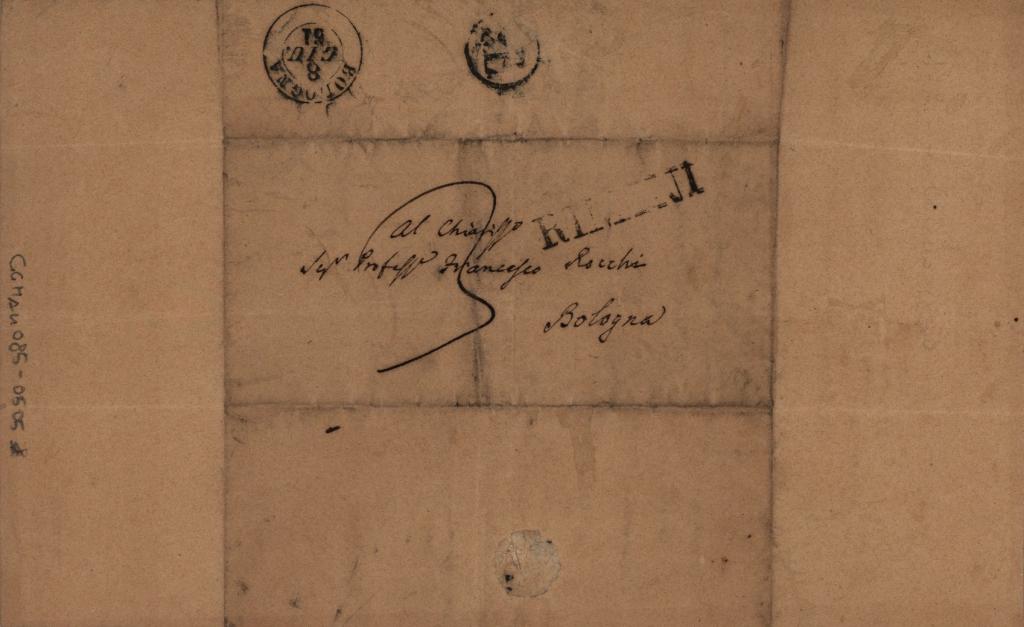 BOLOGNA
8
GIU
Al Chiariss.o
Sig.r Profess.r Francesco Rocchi
Bologna
3
CGMAU 085-0505